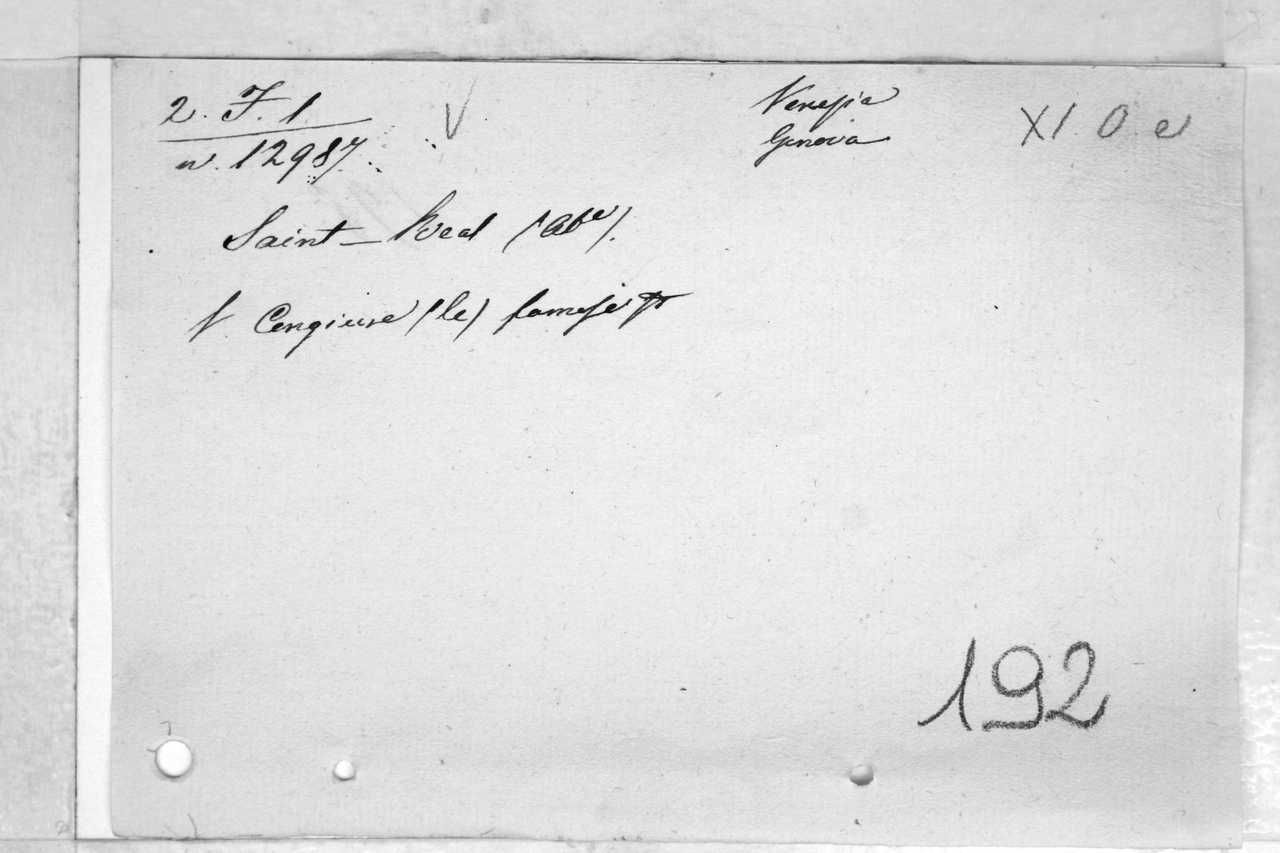 2. F. 1.
n. 12987.
V
Venezia
Genova
XI O e
Saint-Real (Abe).
V. Congiure (le) famose &
192